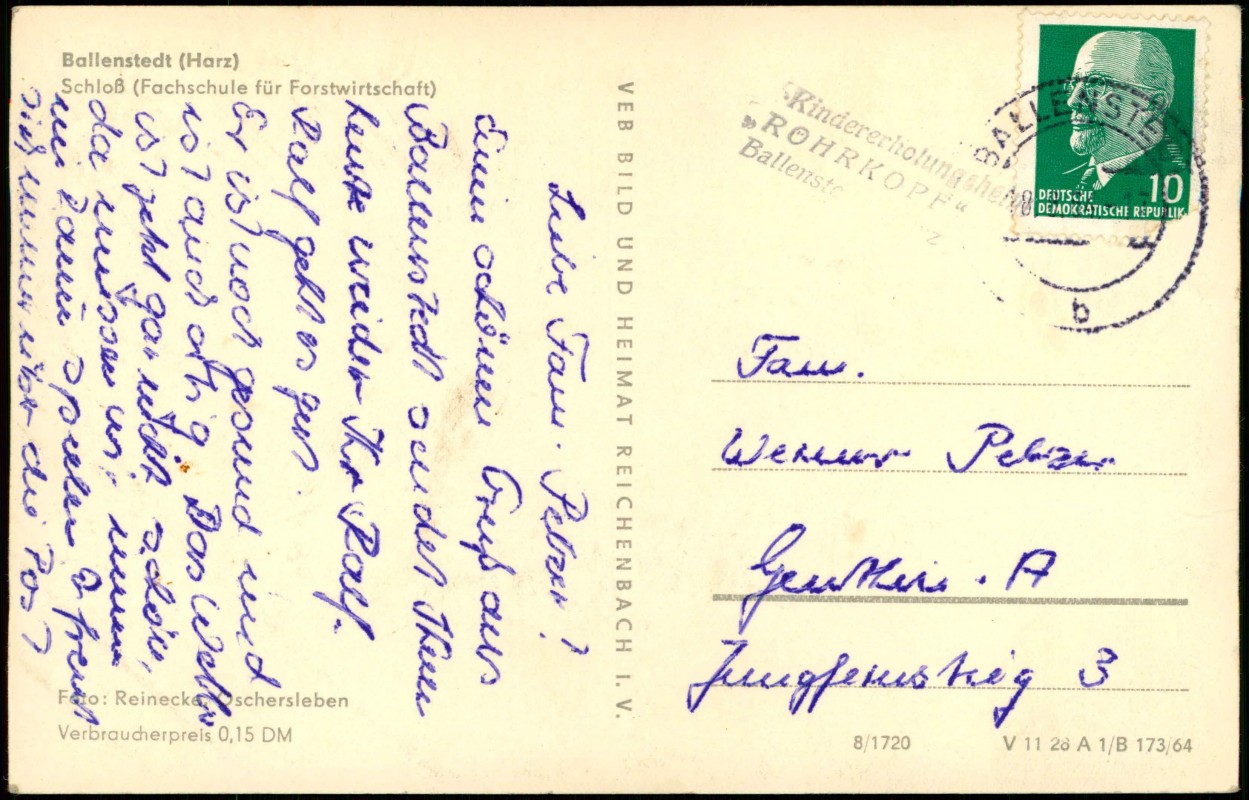 Ballenstedt (Harz)
Schloß (Fachschule für Forstwirtschaft)
Liebe Fam. Pelzer!
Einen schönen Gruß aus
Ballenstedt sendet Ihnen
heute wieder Ihr Ralf.
Ralf geht es gut.
Er ist noch gesund und
ist auch artig. Das Wetter
ist jetzt gar nicht schön,
da müssen wir immer
im
sich immer über die Post
Foto: Reinecke, Oschersleben
Verbraucherpreis 0,15 DM
VEB BILD UND HEIMAT REICHENBACH I. V.
Kindererholungsheim
„ROHRKOPF“
Ballenste
BALLENSTEDT
b
10
DEUTSCHE
DEMOKRATISCHE REPUBLIK
Fam.
Werner Pelzer
Genthin. A
Jungfernstieg 3
8/1720
V 11 28 A 1/B 173/64